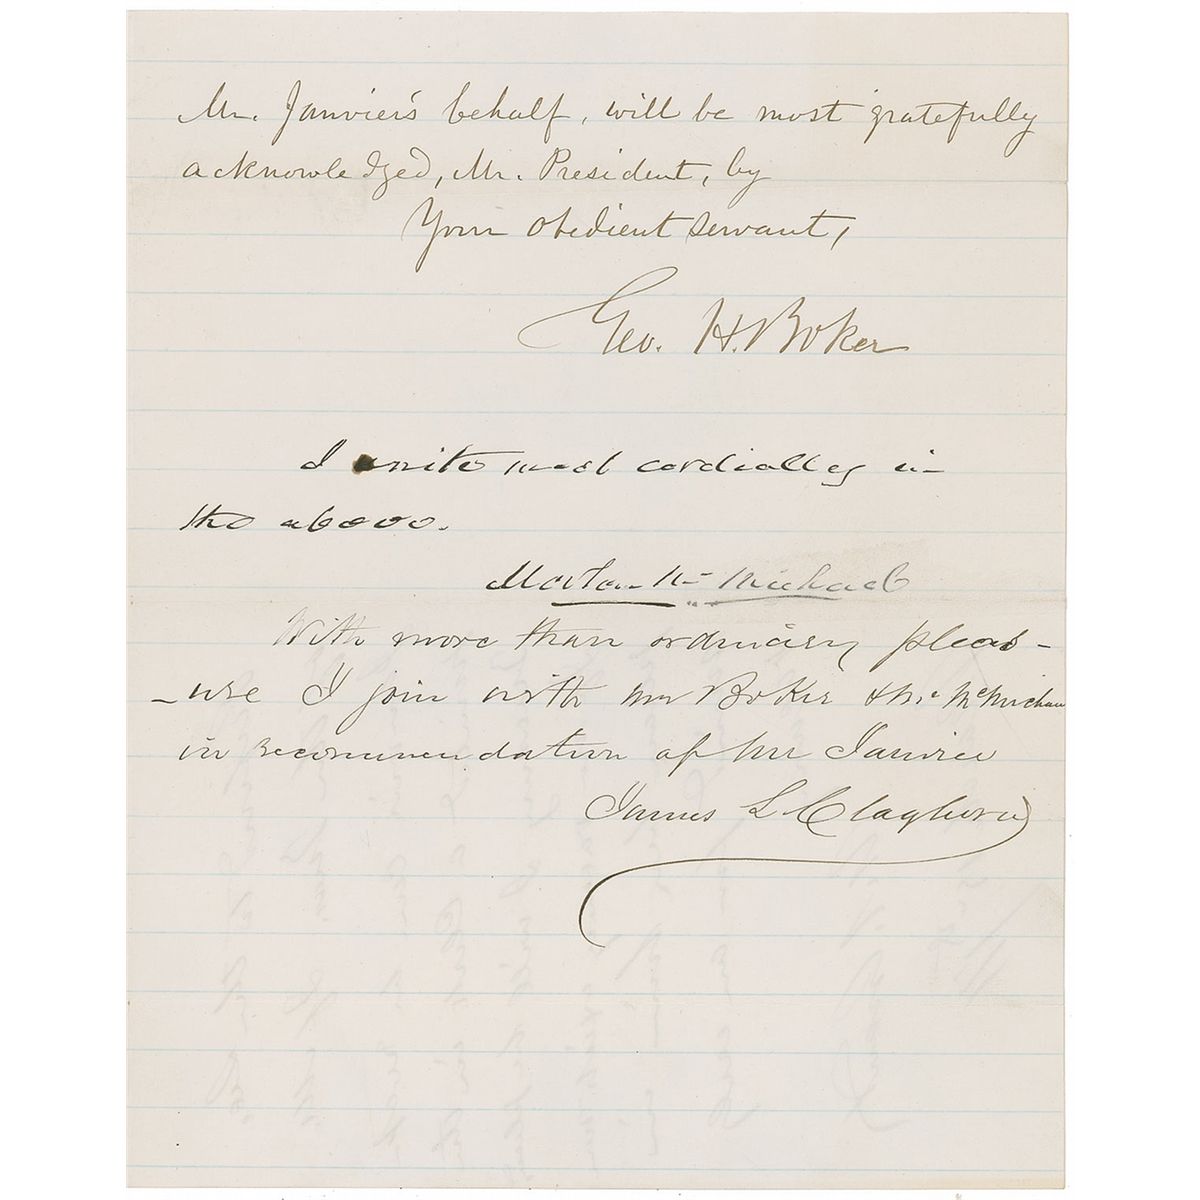 Mr. Janvier's behalf, will be most gratefully
acknowledged, Mr. President, by
Your obedient servant,
Geo. H. Boker
I unite most cordially in
the above.
Morton Mc Michael
With more than ordinary pleas-
-ure I join with Mr Boker & Mr McMichael
in recommendation of Mr Janvier
James L Claghorn